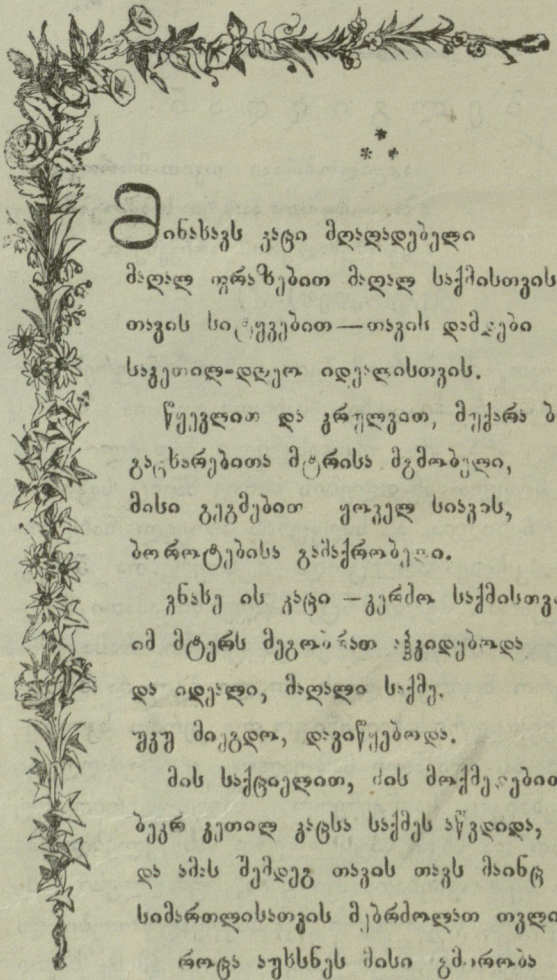 * * *
მინახავს კაცი მღაღადებელი
მაღალ ფრაზებით მაღალ საქმისთვის
თავის სიტყვებით—თავის დამდები
საკეთილ-დღეო იდეალისთვის.
წყევლით და კრულვით, მუქარა
გაცხარებითა მტრისა მგმობელი,
მისი გეგმებით ყოველ სიავის,
ბოროტებისა გამაქრობელი.
ვნახე ის კაცი —კერძო
იმ მტერს მეგობრათ აჰკიდებოდა
და იდეალი, მაღალი საქმე.
უკუ მიეგდო, დავიწყებოდა.
მის საქციელით, მის
ბევრ კეთილ კაცსა საქმეს აწვდიდა,
და ამას შემდეგ თავის თავს მაინც
სიმართლისათვის მებრძოლათ
როცა აუხსნეს მისი გმირობა